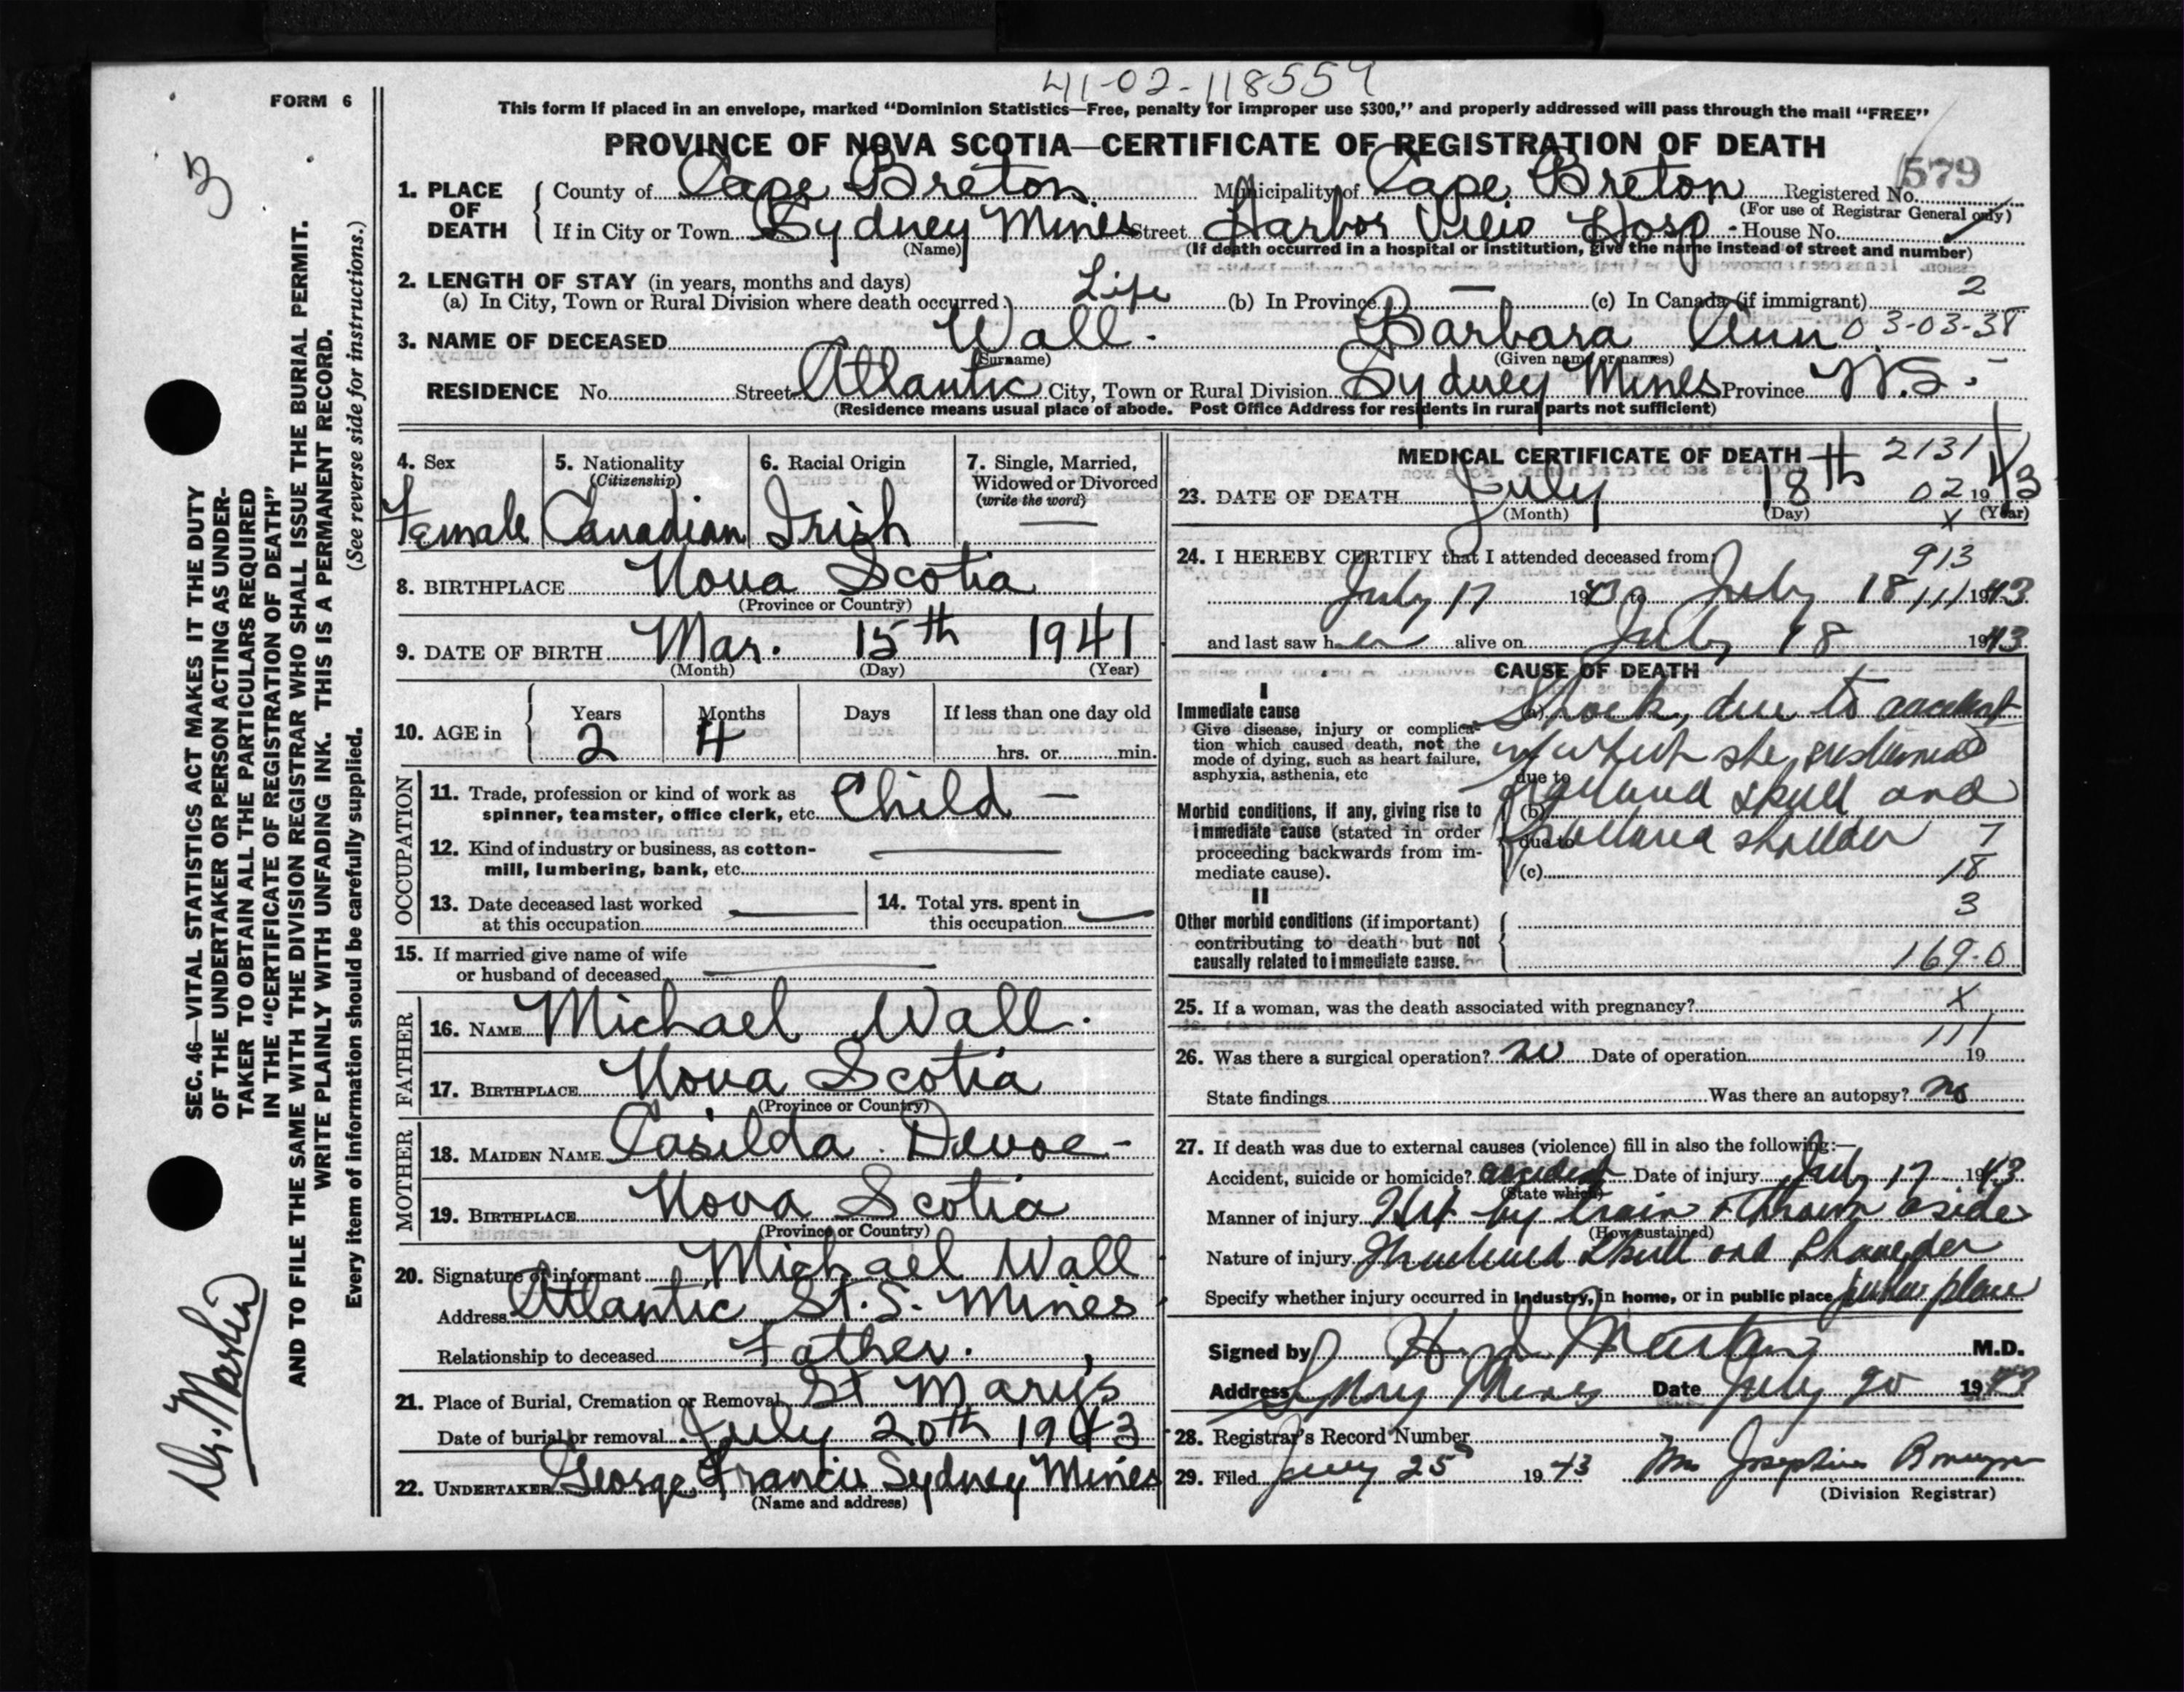 41-02-118559
FORM 6
This form if placed in an envelope, marked “Dominion Statistics—Free, penalty for improper use $300,” and properly addressed will pass through the mail “FREE”
PROVINCE OF NOVA SCOTIA—CERTIFICATE OF REGISTRATION OF DEATH
3
579
1. PLACE OF DEATH { County of Cape Breton Municipality of Cape Breton Registered No.
(For use of Registrar General only)
If in City or Town Sydney Mines Street Harbor View Hosp - House No.
(Name) (If death occurred in a hospital or institution, give the name instead of street and number)
2. LENGTH OF STAY (in years, months and days)
(a) In City, Town or Rural Division where death occurred Life (b) In Province — (c) In Canada (if immigrant) 2
3. NAME OF DECEASED Wall. Barbara Ann 03-03-38
(Surname) (Given name or names)
RESIDENCE No. Street Atlantic City, Town or Rural Division Sydney Mines Province N.S.
(Residence means usual place of abode. Post Office Address for residents in rural parts not sufficient)
4. Sex 5. Nationality (Citizenship) 6. Racial Origin 7. Single, Married, Widowed or Divorced (write the word)
Female Canadian Irish —
8. BIRTHPLACE Nova Scotia
(Province or Country)
9. DATE OF BIRTH Mar. 15th 1941
(Month) (Day) (Year)
10. AGE in { Years Months Days If less than one day old
2 4 hrs. or min.
OCCUPATION
11. Trade, profession or kind of work as spinner, teamster, office clerk, etc. Child —
12. Kind of industry or business, as cotton-mill, lumbering, bank, etc. —
13. Date deceased last worked at this occupation —
14. Total yrs. spent in this occupation —
15. If married give name of wife or husband of deceased —
FATHER
16. NAME Michael Wall.
17. BIRTHPLACE Nova Scotia
(Province or Country)
MOTHER
18. MAIDEN NAME Casilda Devoe -
19. BIRTHPLACE Nova Scotia
(Province or Country)
20. Signature of informant Michael Wall
Address Atlantic St. S. Mines
Relationship to deceased Father.
21. Place of Burial, Cremation or Removal St Mary's
Date of burial or removal July 20th 1943
22. UNDERTAKER George Francis Sydney Mines
(Name and address)
MEDICAL CERTIFICATE OF DEATH 2131
23. DATE OF DEATH July 18th 02 1943
(Month) (Day) X (Year)
24. I HEREBY CERTIFY that I attended deceased from: 913
July 17 1943 to July 18 111 1943
and last saw her alive on July 18 1943
CAUSE OF DEATH
I
Immediate cause
Give disease, injury or complication which caused death, not the mode of dying, such as heart failure, asphyxia, asthenia, etc
(a) Shock, due to accident
in which she sustained
due to
(b) fractured skull and
due to fractured shoulder 7
(c) 18
Morbid conditions, if any, giving rise to immediate cause (stated in order proceeding backwards from immediate cause).
II
3
Other morbid conditions (if important) contributing to death but not causally related to immediate cause.
169-0
25. If a woman, was the death associated with pregnancy? X
111
26. Was there a surgical operation? no Date of operation 19
State findings Was there an autopsy? no
27. If death was due to external causes (violence) fill in also the following:—
Accident, suicide or homicide? accident Date of injury July 17 1943
(State which)
Manner of injury Hit by train & thrown aside
(How sustained)
Nature of injury Fractured Skull and Shoulder
Specify whether injury occurred in industry, in home, or in public place public place
Signed by Martin M.D.
Address Sydney Mines Date July 20 1943
28. Registrar's Record Number
29. Filed July 25 1943 Mrs Josephine
(Division Registrar)
SEC. 46—VITAL STATISTICS ACT MAKES IT THE DUTY
OF THE UNDERTAKER OR PERSON ACTING AS UNDER-
TAKER TO OBTAIN ALL THE PARTICULARS REQUIRED
IN THE “CERTIFICATE OF REGISTRATION OF DEATH”
AND TO FILE THE SAME WITH THE DIVISION REGISTRAR WHO SHALL ISSUE THE BURIAL PERMIT.
WRITE PLAINLY WITH UNFADING INK. THIS IS A PERMANENT RECORD.
Every item of information should be carefully supplied. (See reverse side for instructions.)
Dr. Martin